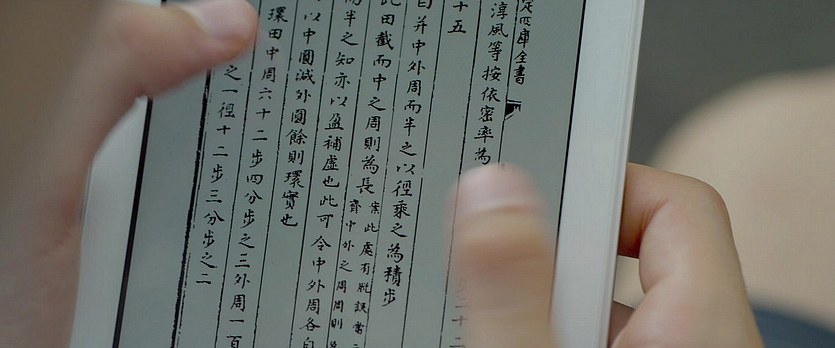 四庫全書
淳風等按依密率為
十五
并中外周而半之以徑乘之為積步
此田截而中之周則為長
案此處有脫誤當
齊中外之周周則
而半之知亦以盈補虛也此可令中外周各自
以中圓減外圓餘則環實也
環田中周六十二步四分步之三外周一百
之一徑十二步三分步之二